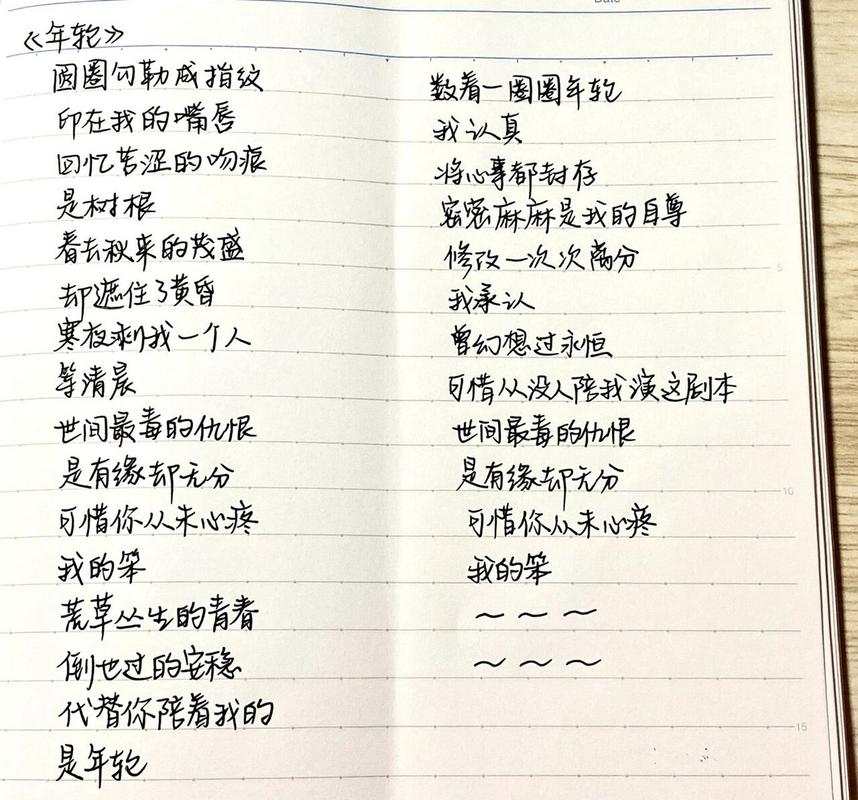 《年轮》
圆圈勾勒成指纹
印在我的嘴唇
回忆苦涩的吻痕
是树根
春去秋来的茂盛
却遮住了黄昏
寒夜剩我一个人
等清晨
世间最毒的仇恨
是有缘却无分
可惜你从未心疼
我的笨
荒草丛生的青春
倒也过的安稳
代替你陪着我的
是年轮
数着一圈圈年轮
我认真
将心事都封存
密密麻麻是我的自尊
修改一次次离分
我承认
曾幻想过永恒
可惜从没人陪我演这剧本
世间最毒的仇恨
是有缘却无分
可惜你从未心疼
我的笨
～～～
～～～
Date
5
10
15